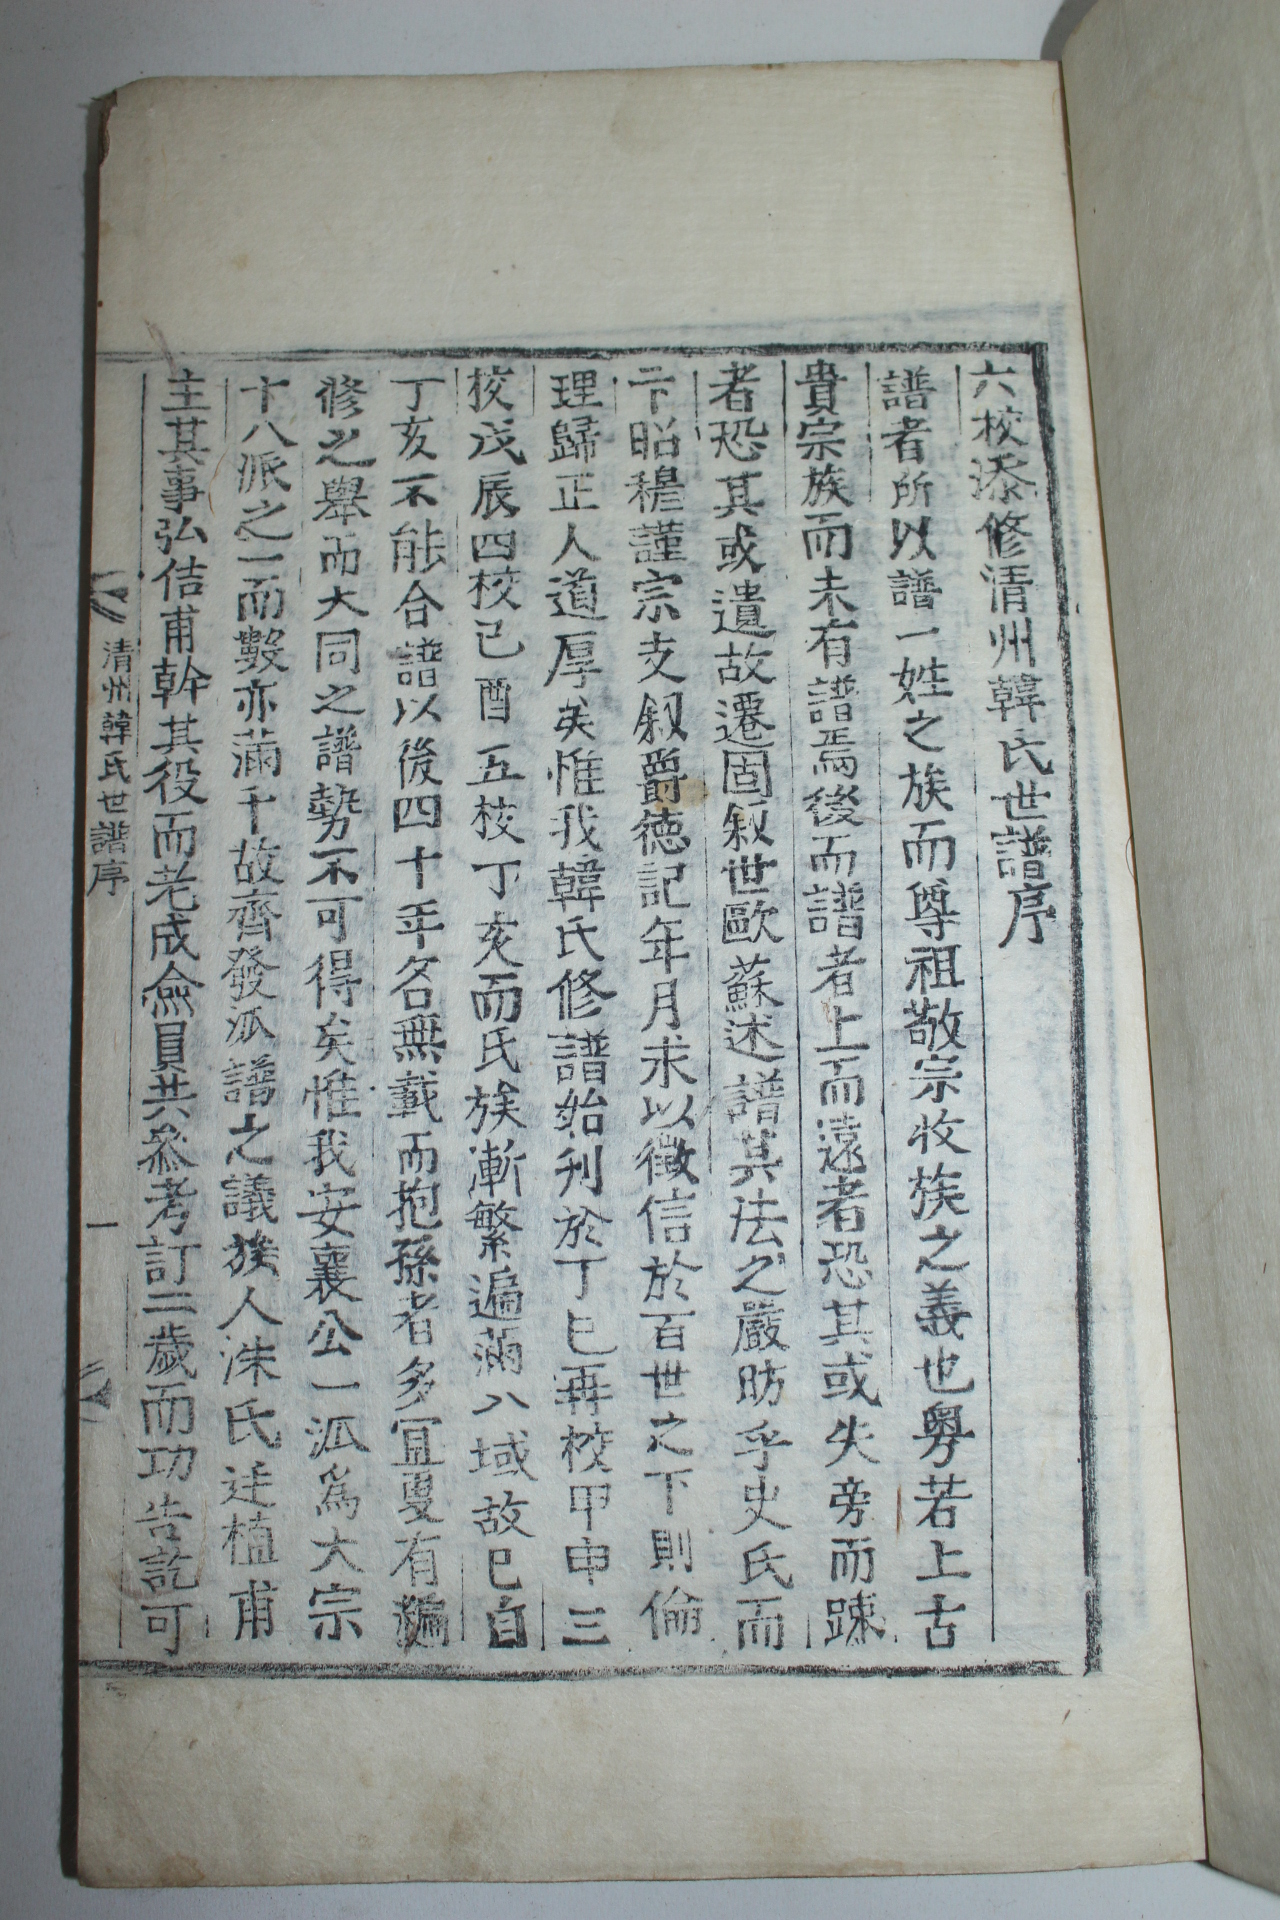 六校添修清州韓氏世譜序
譜者所以譜一姓之族而尊祖敬宗收族之義也粤若上古
貴宗族而未有譜焉後而譜者上而遠者恐其或失旁而踈
者恐其或遺故遷固叙世歐蘇述譜其法之嚴昉乎史氏而
卞昭穆謹宗支叙爵德記年月求以徵信於百世之下則倫
理歸正人道厚矣惟我韓氏修譜始刋於丁巳再校甲申三
校戊辰四校己酉五校丁亥而氏族漸繁遍滿八域故已自
丁亥不能合譜以後四十年名無載而抱孫者多冝更有編
修之舉而大同之譜勢不可得矣惟我安襄公一派爲大宗
十八派之一而數亦滿千故齊發派譜之議族人洙氏廷植甫
主其事弘佶甫幹其役而老成僉員共叅考訂二歲而功告訖可
清州韓氏世譜序
一